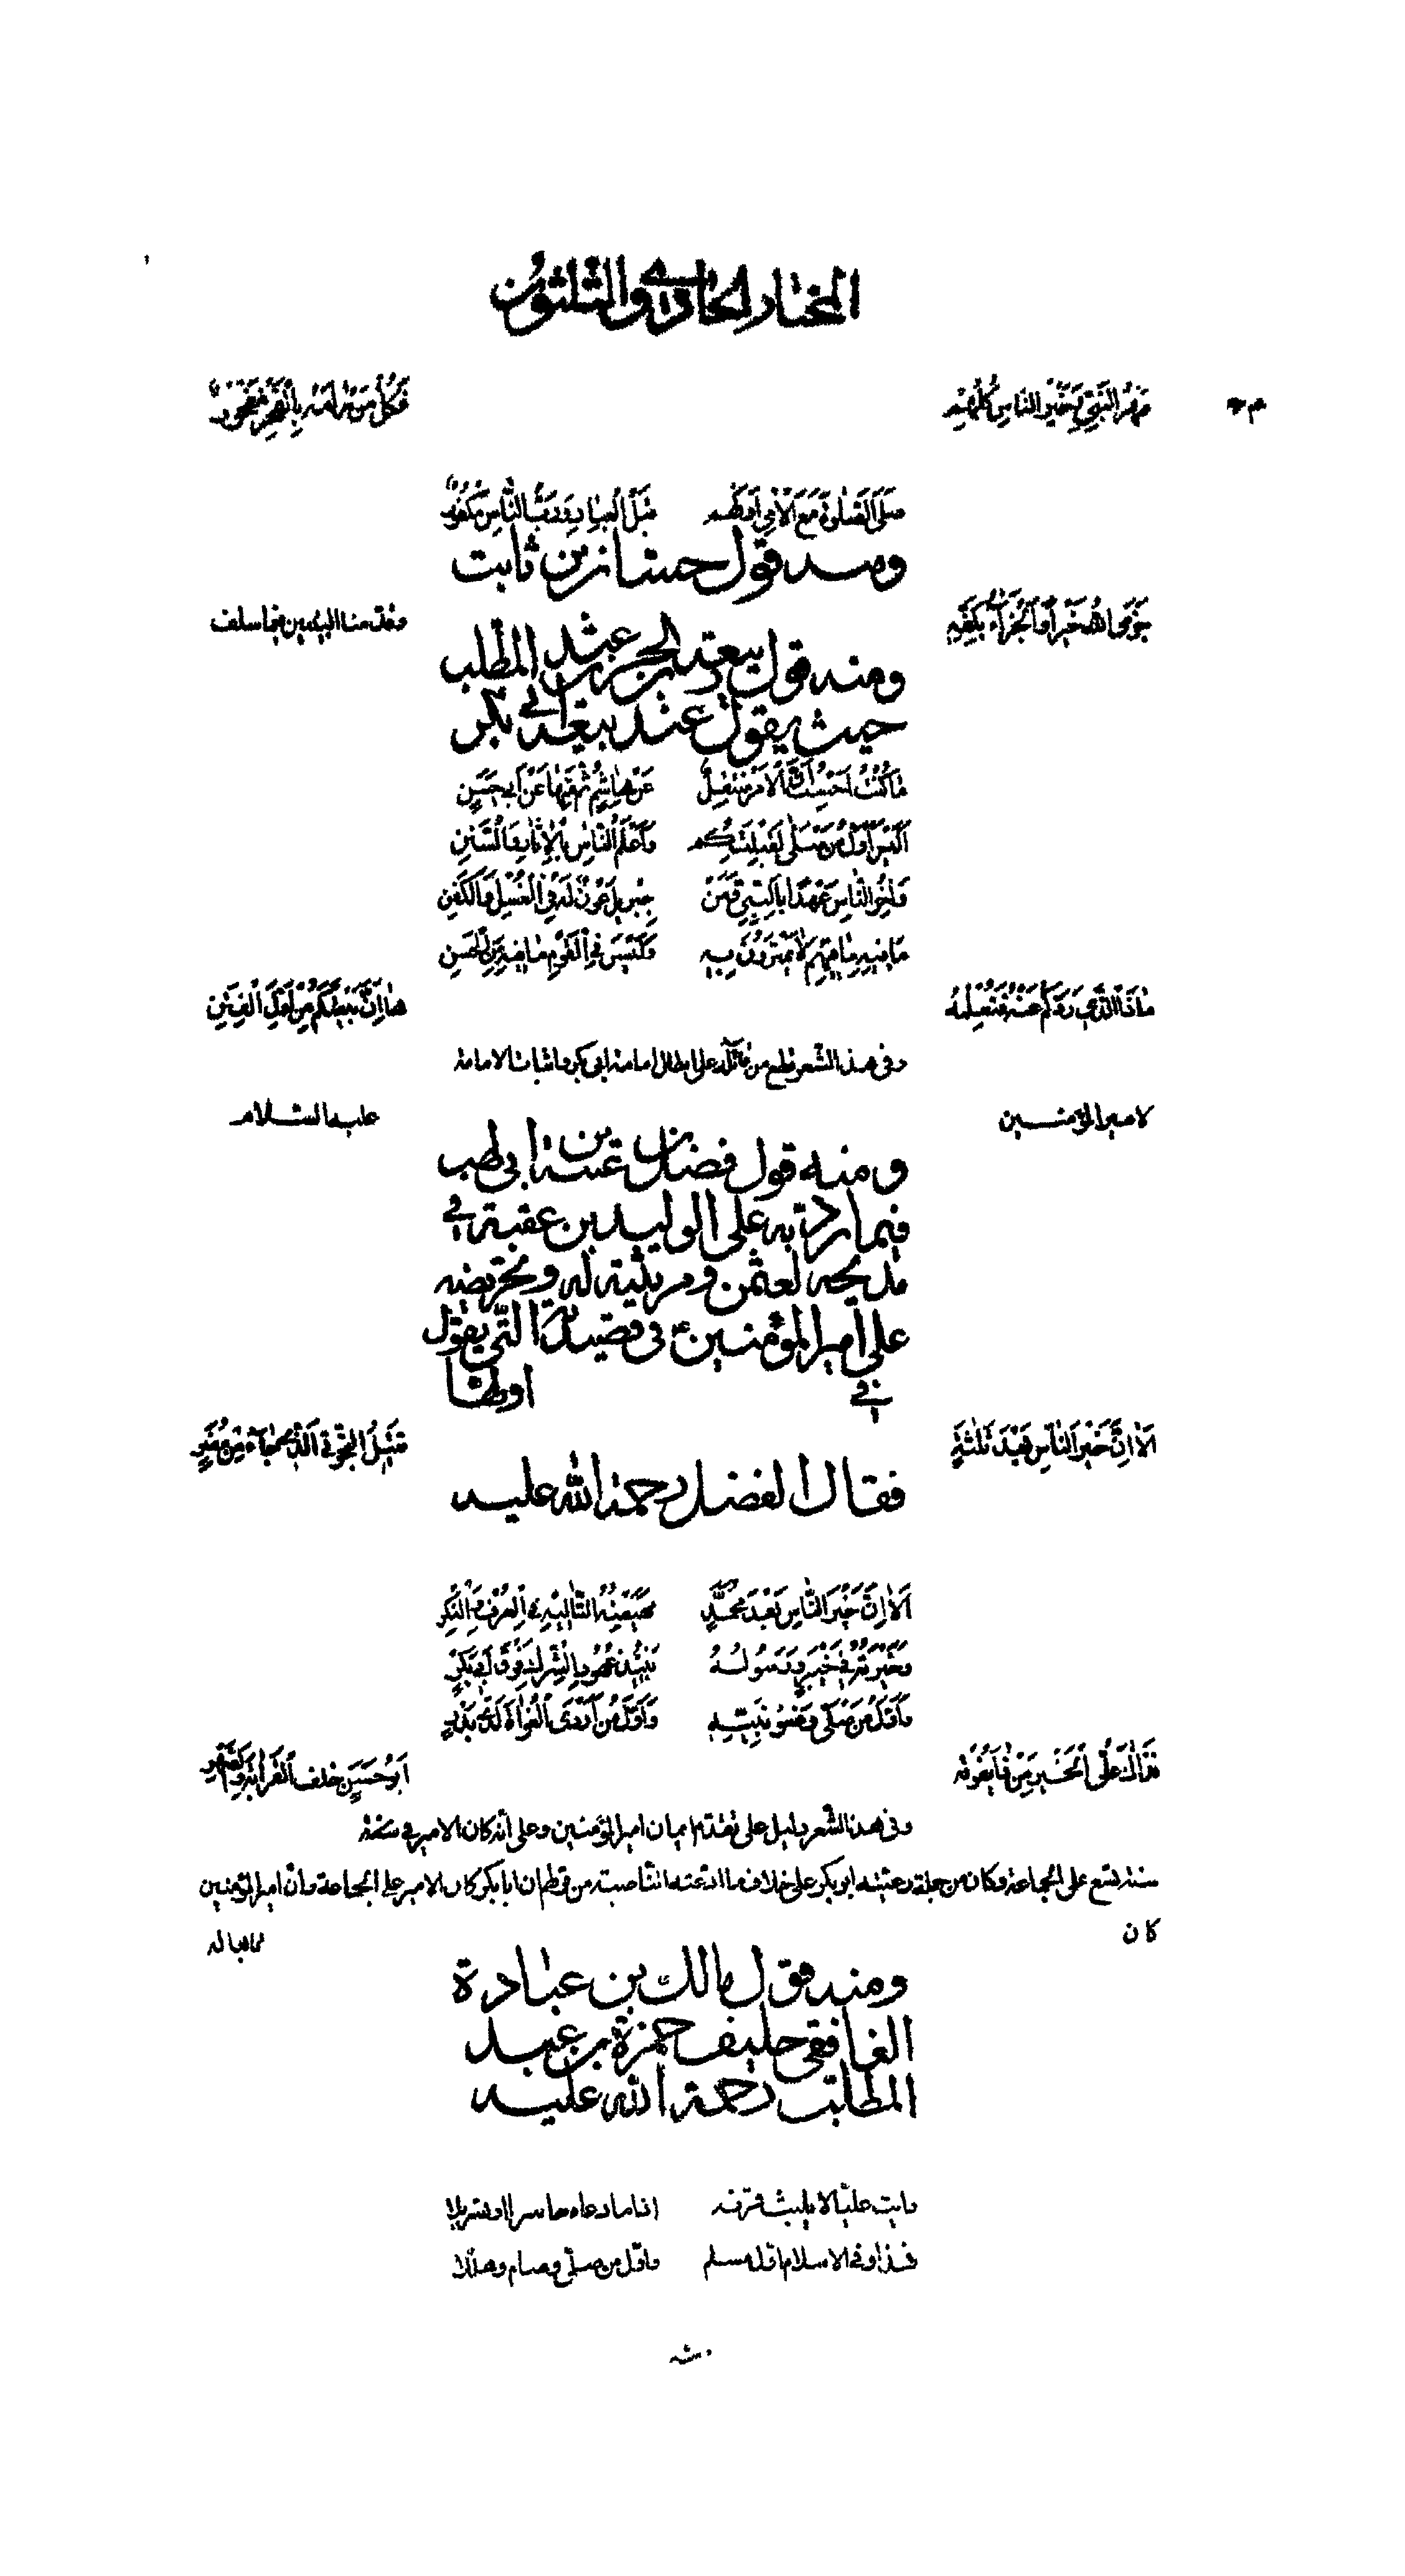 المختار الحادي والثلثون
صِهْرُ النَّبِيِّ وَخَيْرُ النَّاسِ كُلِّهِمْ فَكُلُّ مَنْ رَامَهُ بِالْفَخْرِ مَفْخُورٌ
صَلَّى الصَّلوٰةَ مَعَ الْأُمِّيِّ أَوَّلَهُمْ قَبْلَ الْعِبَادِ وَرَبُّ النَّاسِ مَكْفُورٌ
ومنه قول حسان بن ثابت
جَزَى اللهُ خَيْراً وَالْجَزَاءُ بِكَفِّهِ
ومنه قول ربيعة بن الحرث بن عبد المطلب
حيث يقول عند بيعة أبي بكر
مَا كُنْتُ أَحْسِبُ أَنَّ الْأَمْرَ مُنْتَقِلٌ عَنْ هَاشِمٍ ثُمَّ مِنْهَا عَنْ أَبِي حَسَنٍ
أَلَيْسَ أَوَّلَ مَنْ صَلَّى لِقِبْلَتِكُمْ وَأَعْلَمَ النَّاسِ بِالْآثَارِ وَالسُّنَنِ
وَآخِرَ النَّاسِ عَهْداً بِالنَّبِيِّ وَمَنْ جِبْرِيلُ عَوْنٌ لَهُ فِي الْغُسْلِ وَالْكَفَنِ
مَا فِيهِ مَا فِيهِمْ لَا يَمْتَرُونَ بِهِ وَلَيْسَ فِي الْقَوْمِ مَا فِيهِ مِنَ الْحَسَنِ
مَاذَا الَّذِي رَدَّكُمْ عَنْهُ فَنَعْلَمَهُ هَا إِنَّ بَيْعَتَكُمْ مِنْ أَوَّلِ الْفِتَنِ
وفي هذا الشعر قطع من قائله على ابطال امامة ابي بكر واثبات الامامة
لامير المؤمنين عليه السلام
ومنه قول فضل بن عتبة بن ابي لهب
فيما رد به على الوليد بن عقبة في
مديحه لعثمن ومرثيته له وتحريضه
على أمير المؤمنين ع في قصيدته التي يقول
في اولها
أَلَا إِنَّ خَيْرَ النَّاسِ بَعْدَ ثَلٰثَةٍ قَتِيلُ التُّجُوبِيِّ الَّذِي جَاءَ مِنْ مِصْرٍ
فقال الفضل رحمة الله عليه
أَلَا إِنَّ خَيْرَ النَّاسِ بَعْدَ مُحَمَّدٍ مُهَيْمِنُهُ التَّالِيهِ فِي الْعُرْفِ وَالنُّكْرِ
وَخِيَرَتُهُ فِي خَيْبَرٍ وَرَسُولُهُ بِنَبْذِ عُهُودِ الشِّرْكِ فَوْقَ أَبِي بَكْرٍ
وَأَوَّلُ مَنْ صَلَّى وَصِنْوُ نَبِيِّهِ وَأَوَّلُ مَنْ أَرْدَى الْغُوَاةَ لَدَى بَدْرٍ
فَذَاكَ عَلِيُّ الْخَيْرِ مَنْ ذَا يَفُوقُهُ أَبُو حَسَنٍ حِلْفُ الْقَرَابَةِ وَالصِّهْرِ
وفي هذا الشعر دليل على تقدم ايمان امير المؤمنين وعلى أنه كان الامير في
سنة تسع على الجماعة وكان من جملة رعيته ابو بكر على خلاف ما ادعته الناصبة من قولهم ان ابا بكر كان الامير على الجماعة وأن امير المؤمنين
كان تابعا له
ومنه قول مالك بن عبادة
الغافقي حليف حمزة بن عبد
المطلب رحمة الله عليه
رايت عليا لا يلبث قرنه اذا ما دعاه حاسرا او مسربلا
فهذا وفي الاسلام اول مسلم واول من صلى وصام وهللا